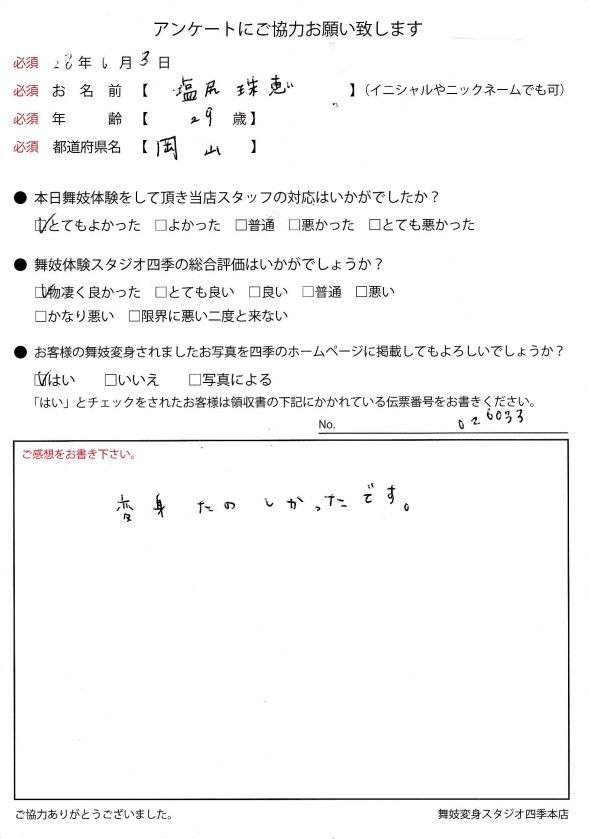 アンケートにご協力お願い致します
必須 28年6月3日
必須 お名前【 塩尻 珠恵 】(イニシャルやニックネームでも可)
必須 年齢【 29 歳】
必須 都道府県名【 岡山 】
● 本日舞妓体験をして頂き当店スタッフの対応はいかがでしたか?
☑とてもよかった □よかった □普通 □悪かった □とても悪かった
● 舞妓体験スタジオ四季の総合評価はいかがでしょうか?
☑物凄く良かった □とても良い □良い □普通 □悪い
□かなり悪い □限界に悪い二度と来ない
● お客様の舞妓変身されましたお写真を四季のホームページに掲載してもよろしいでしょうか?
☑はい □いいえ □写真による
「はい」とチェックをされたお客様は領収書の下記にかかれている伝票番号をお書きください。
No. 026033
ご感想をお書き下さい。
変身たのしかったです。
ご協力ありがとうございました。 舞妓変身スタジオ四季本店